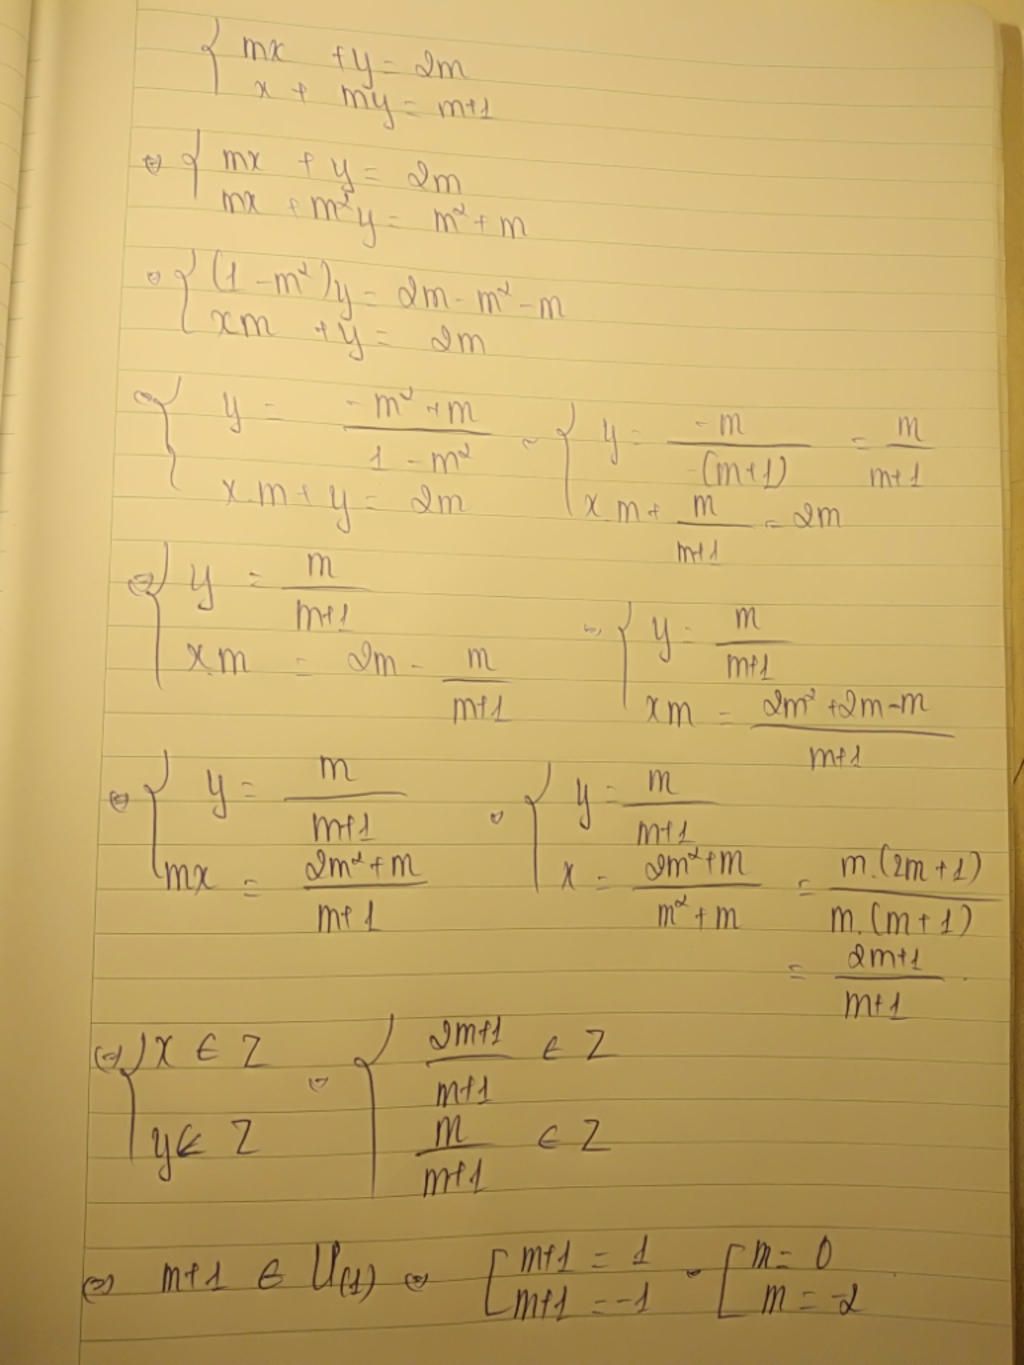 { mx + y = 2m
x + my = m+1
⇔ { mx + y = 2m
mx + m²y = m² + m
⇔ { (1 - m²)y = 2m - m² - m
xm + y = 2m
⇔ { y = (-m² + m)/(1 - m²) ⇔ { y = (-m)/(-(m+1)) = m/(m+1)
x.m + y = 2m x m + m/(m+1) = 2m
⇔ { y = m/(m+1) ⇔ { y = m/(m+1)
x m = 2m - m/(m+1) x m = (2m² + 2m - m)/(m+1)
⇔ { y = m/(m+1) ⇔ { y = m/(m+1)
mx = (2m² + m)/(m+1) x = (2m² + m)/(m² + m) = (m.(2m+1))/(m.(m+1))
= (2m+1)/(m+1).
⇔ { x ∈ Z ⇔ { (2m+1)/(m+1) ∈ Z
y ∈ Z m/(m+1) ∈ Z
⇔ m+1 ∈ Ư(1) ⇔ [ m+1 = 1 ⇔ [ m = 0
m+1 = -1 m = -2